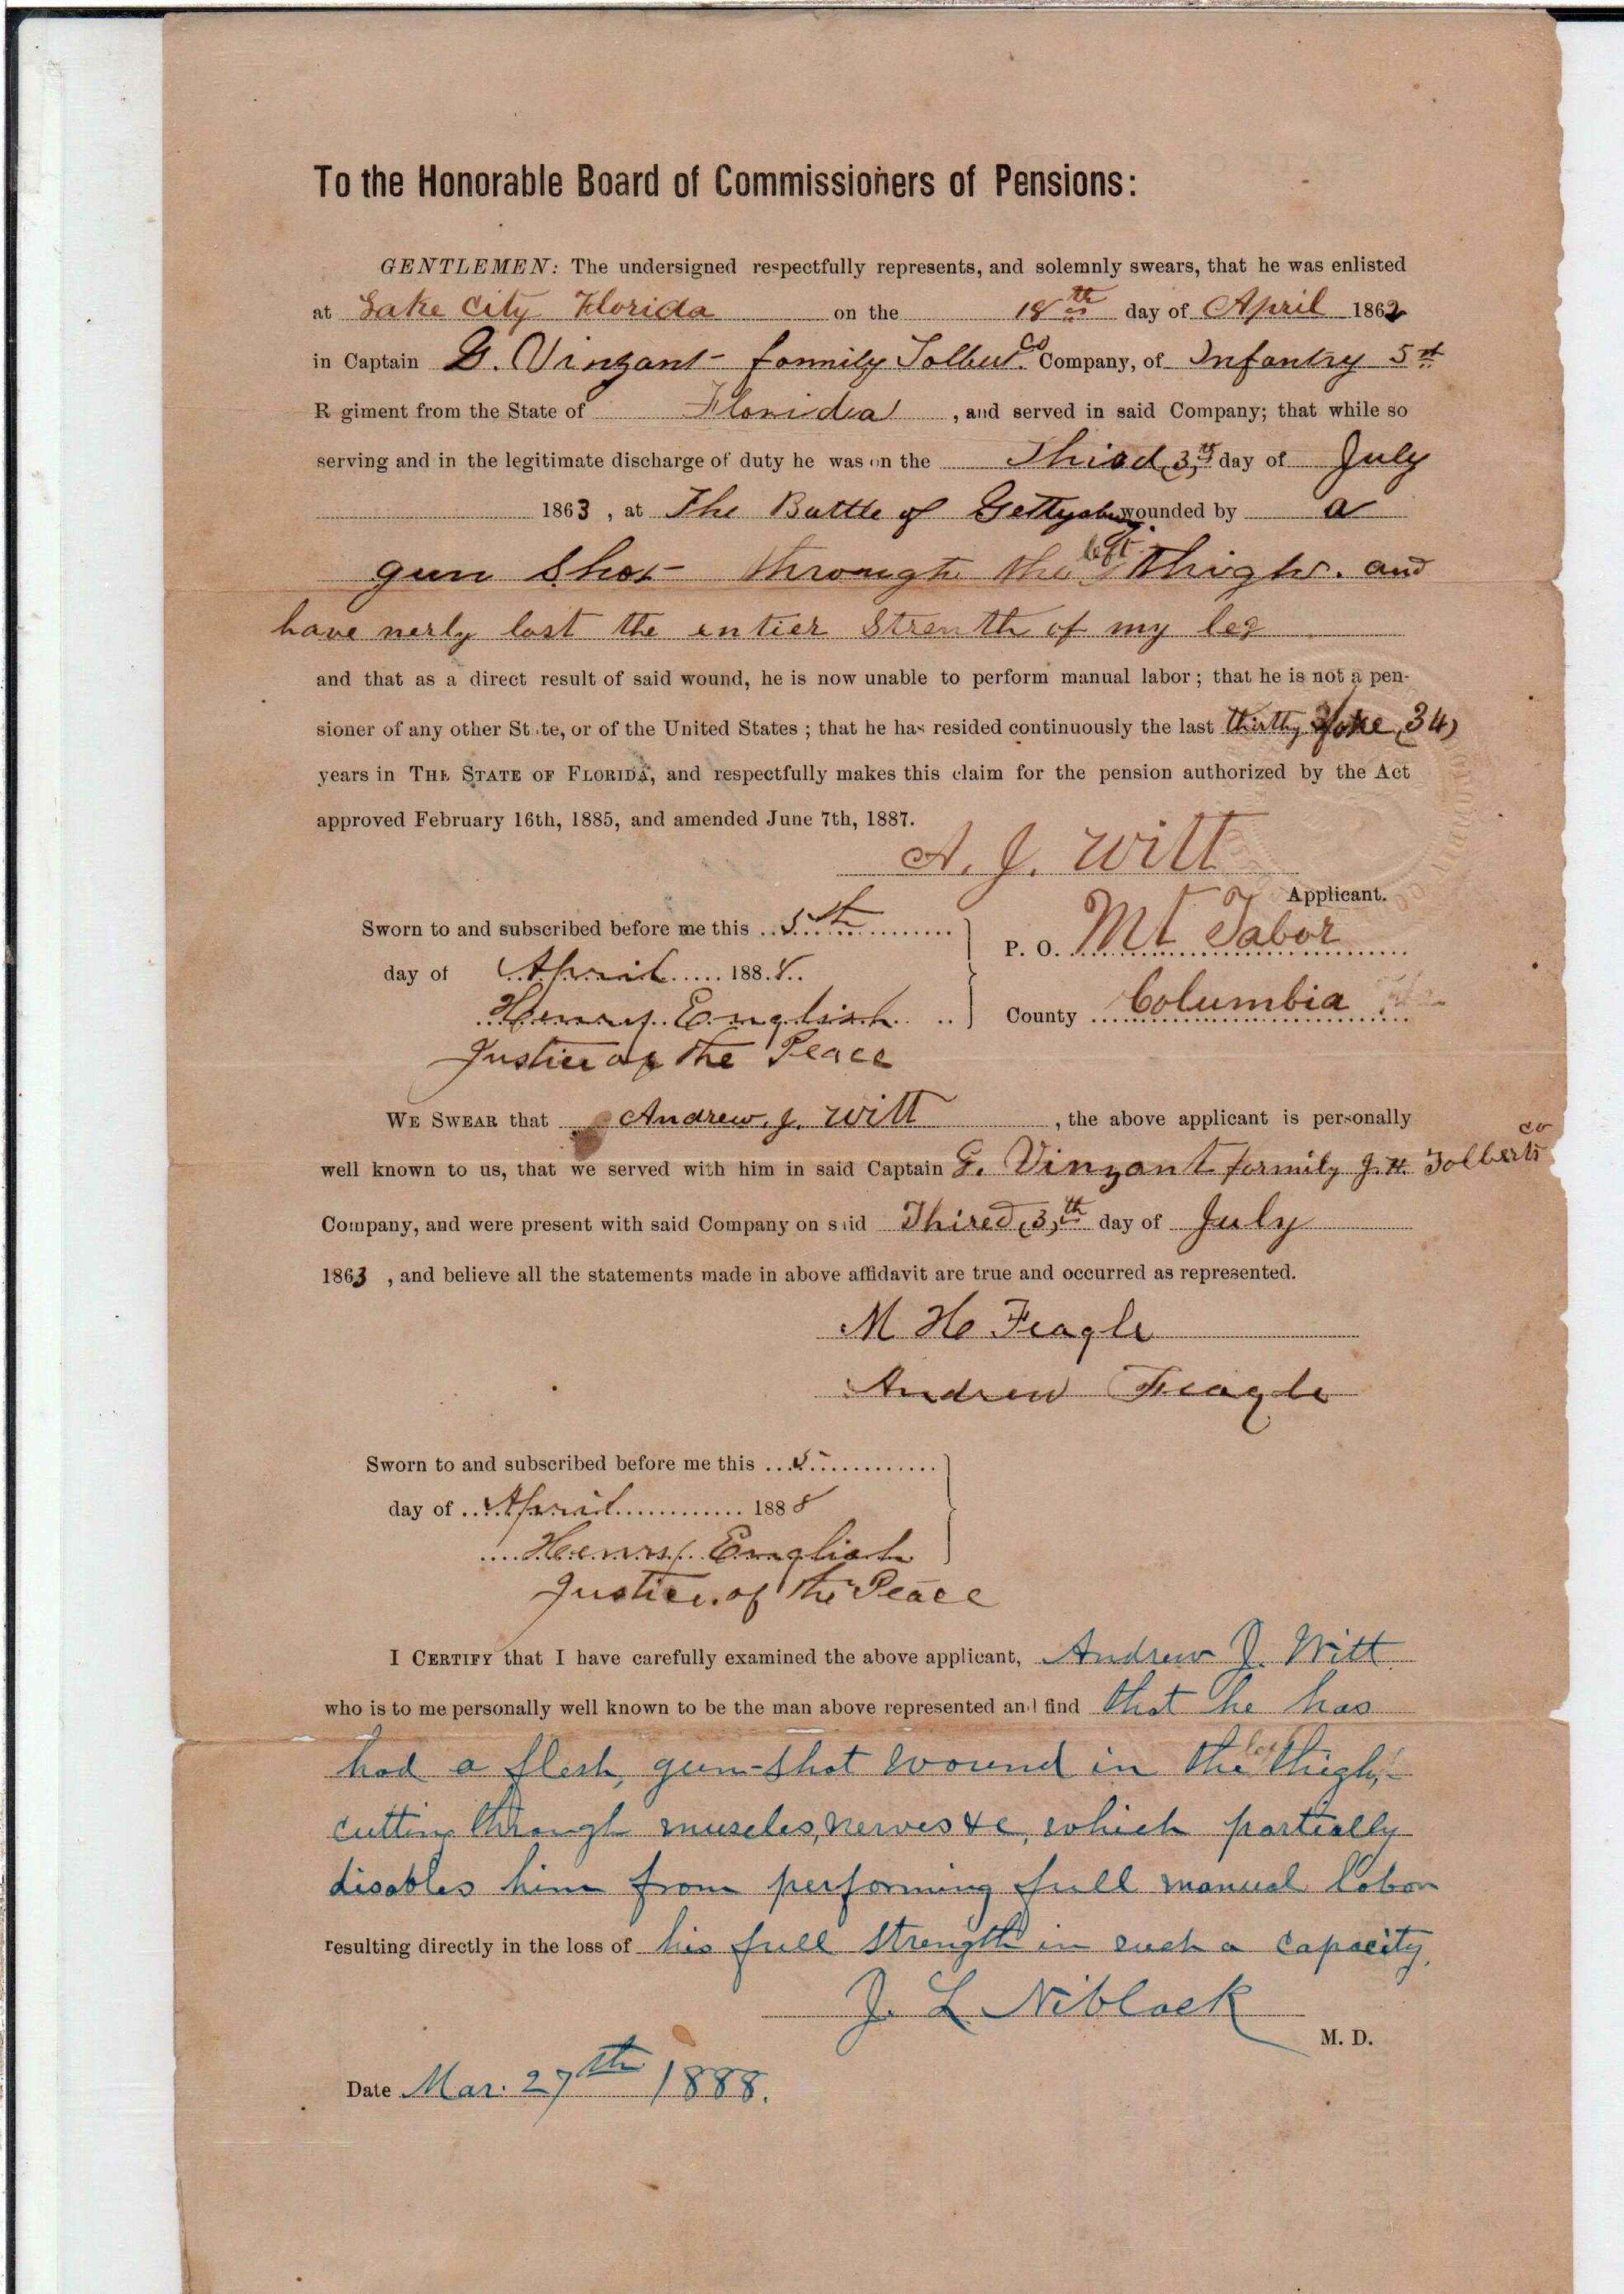 To the Honorable Board of Commissioners of Pensions:
GENTLEMEN: The undersigned respectfully represents, and solemnly swears, that he was enlisted
at Lake City Florida on the 18th day of April 1862
in Captain G. Vinzant formily Tolbert Co Company, of Infantry 5th
R giment from the State of Florida , and served in said Company; that while so
serving and in the legitimate discharge of duty he was on the Thired (3)th day of July
1863 , at The Battle of Gettysburg wounded by a
gun shot through the left thigh. and
have nerly lost the entier strenth of my leg
and that as a direct result of said wound, he is now unable to perform manual labor; that he is not a pen-
sioner of any other St te, or of the United States; that he has resided continuously the last thirthy (34)
years in THE STATE OF FLORIDA, and respectfully makes this claim for the pension authorized by the Act
approved February 16th, 1885, and amended June 7th, 1887.
A. J. Witt
Applicant.
Sworn to and subscribed before me this 5th
day of April 1888.
Henry English
Justice of the Peace
P. O. Mt Tabor
County Columbia
WE SWEAR that Andrew. J. Witt , the above applicant is personally
well known to us, that we served with him in said Captain G. Vinzant formily J. H. Tolberts co
Company, and were present with said Company on said Thired (3)th day of July
1863 , and believe all the statements made in above affidavit are true and occurred as represented.
M H Feagle
Andrew Feagle
Sworn to and subscribed before me this 5
day of April 1888
Henry English
Justice. of the Peace
I CERTIFY that I have carefully examined the above applicant, Andrew J. Witt
who is to me personally well known to be the man above represented and find that he has
had a flesh, gun-shot wound in the left thigh,
cutting through muscles, nerves &c, which partially
disables him from performing full manual labor
resulting directly in the loss of his full strength in such a capacity.
J. L. Niblack
M. D.
Date Mar. 27th 1888.